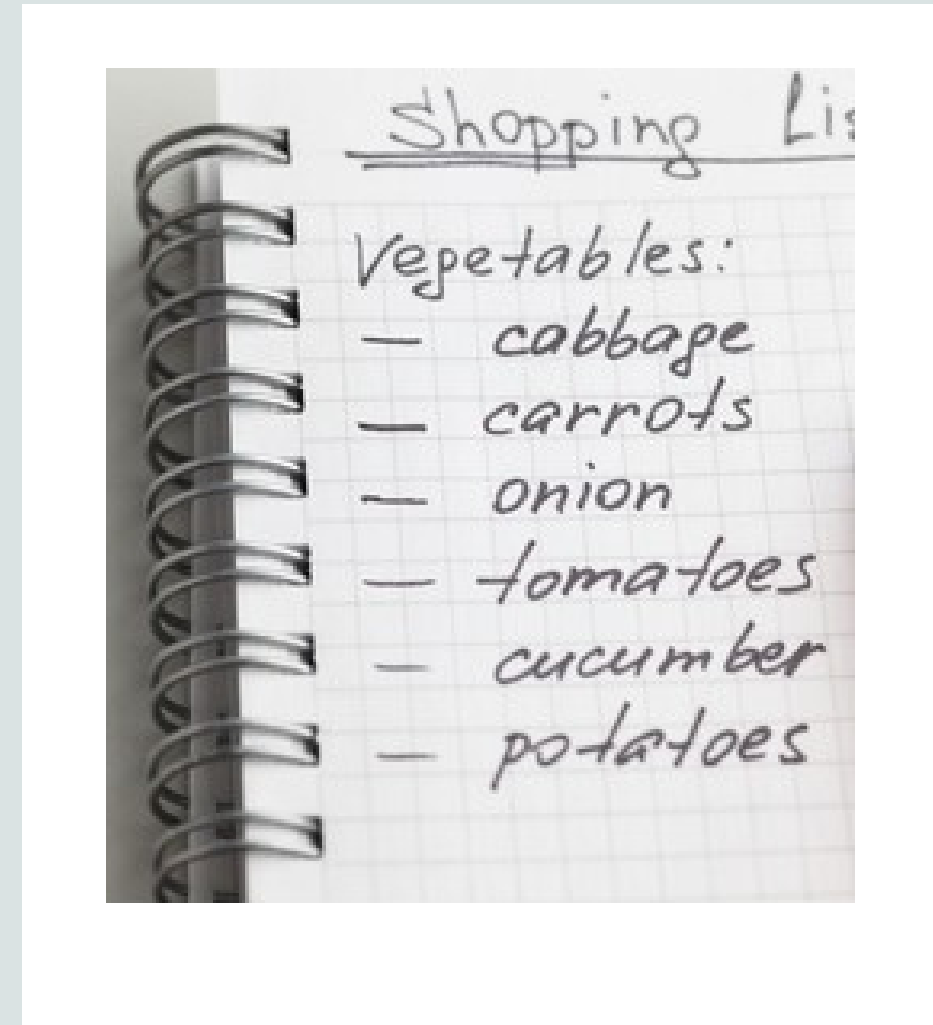 Shopping Lis
Vegetables:
— cabbage
— carrots
— onion
— tomatoes
— cucumber
— potatoes